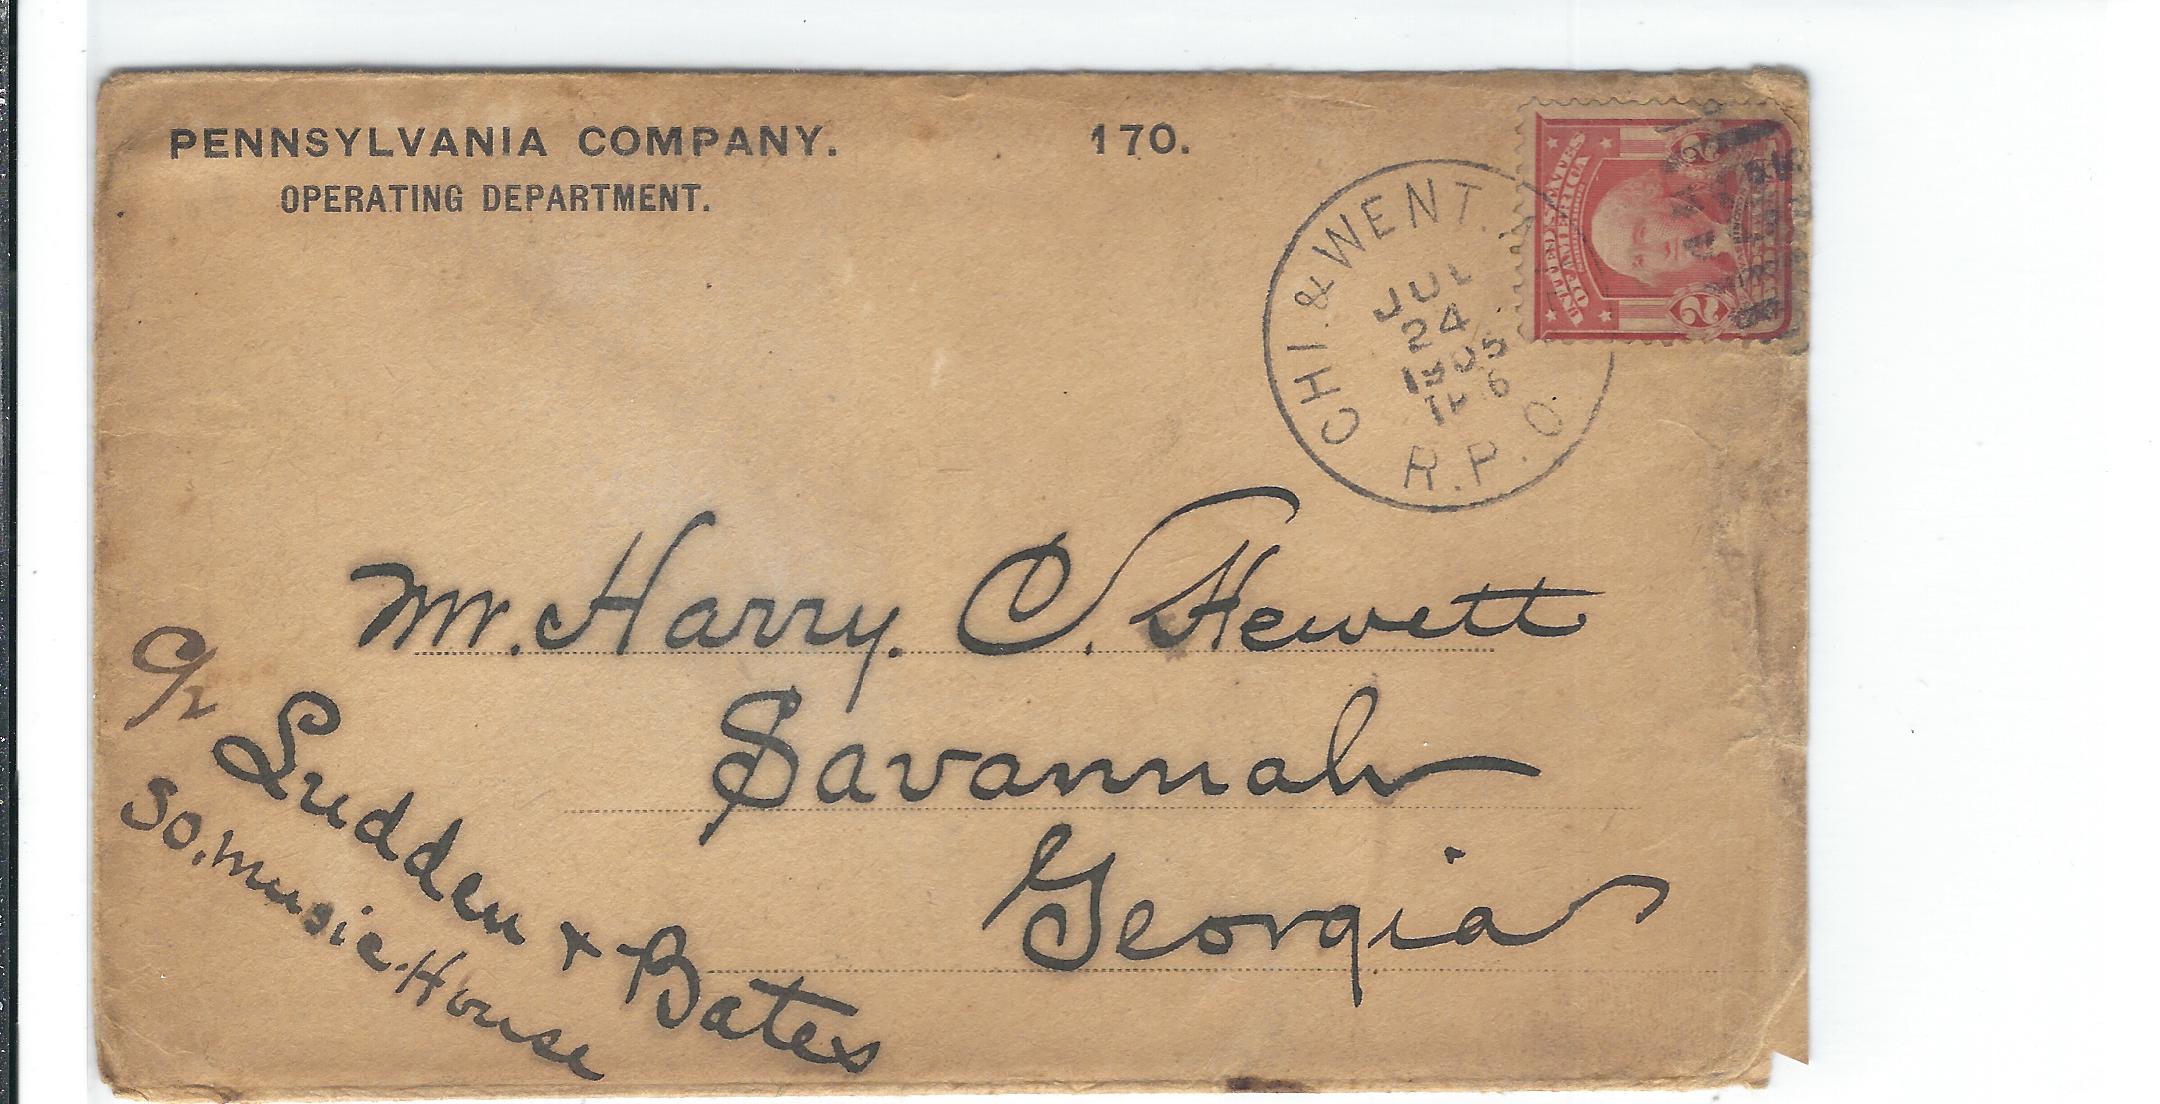 PENNSYLVANIA COMPANY. 170.
OPERATING DEPARTMENT.
CHI. & WENT.
JUL
24
1905
R.P.O.
UNITED STATES
OF AMERICA
2 2
Mr. Harry. C. Hewett
Savannah
Georgia
c/o
Ludden & Bates
So. Music House